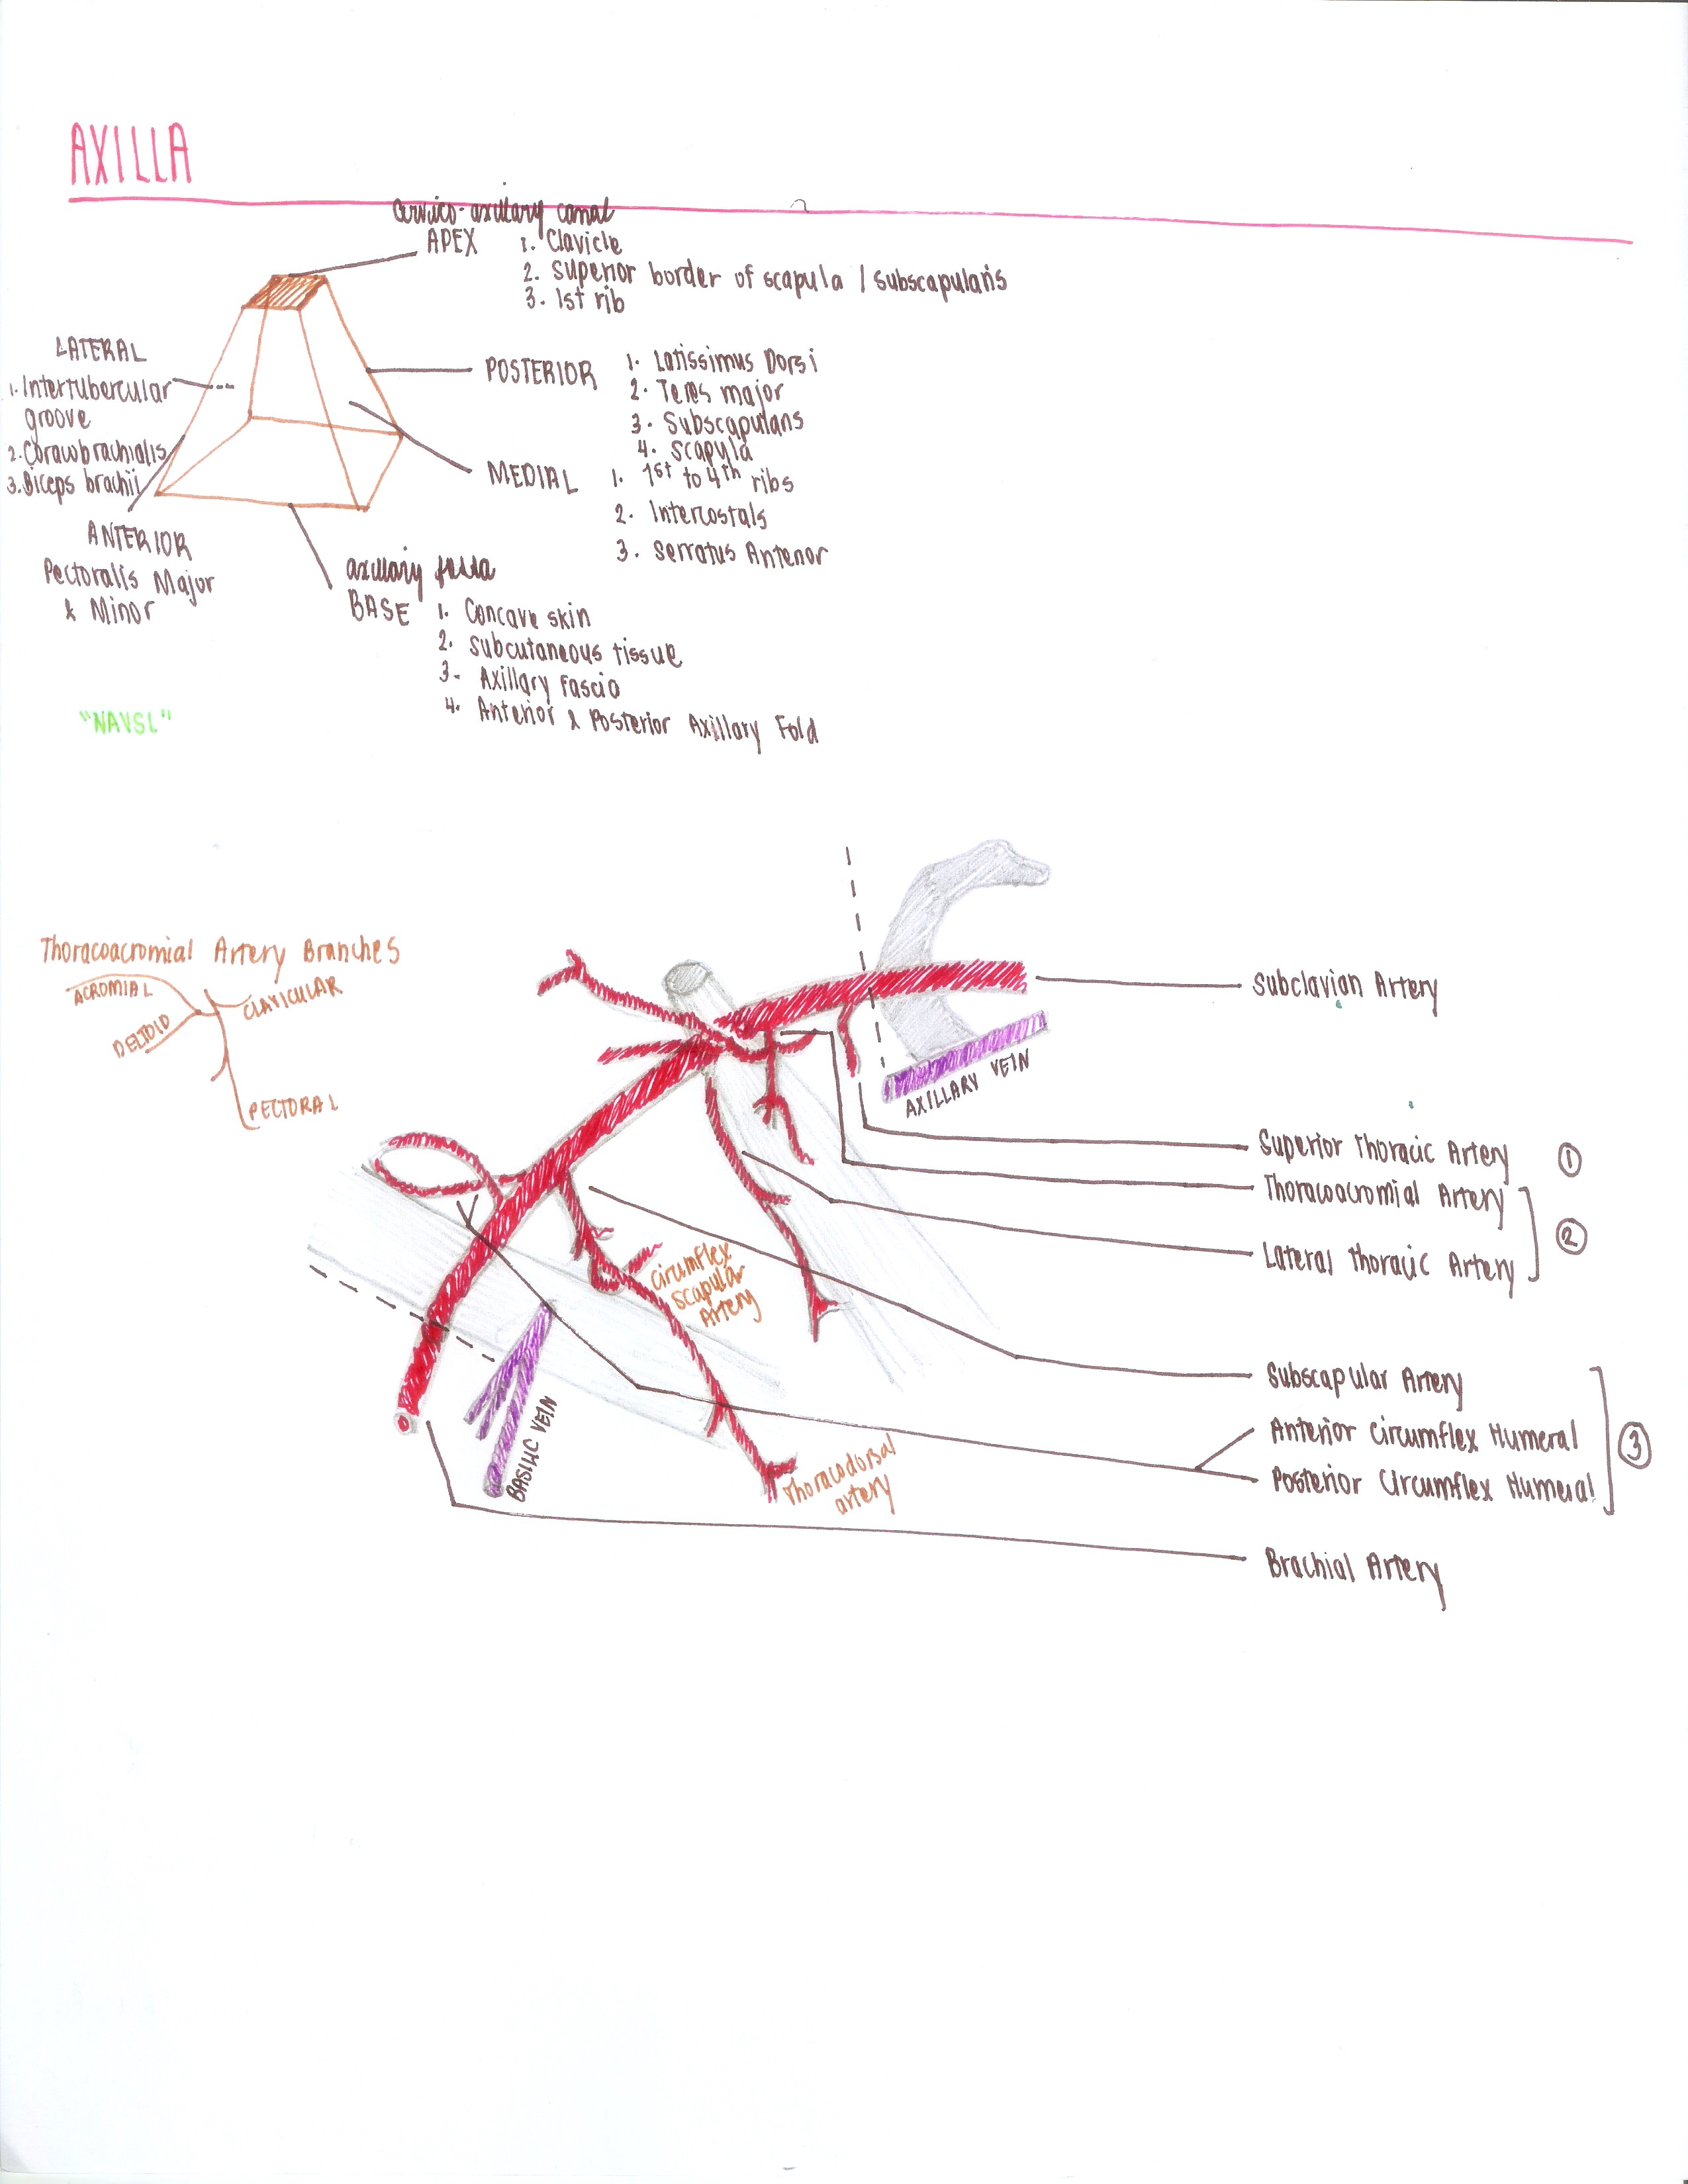 AXILLA
cervico-axillary canal
APEX
1. Clavicle
2. superior border of scapula / subscapularis
3. 1st rib
LATERAL
1. Intertubercular
groove
2. Coracobrachialis
3. Biceps brachii
POSTERIOR
1. Latissimus Dorsi
2. Teres major
3. Subscapularis
4. Scapula
MEDIAL
1. 1st to 4th ribs
2. Intercostals
3. Serratus Anterior
ANTERIOR
Pectoralis Major
& Minor
axillary fossa
BASE
1. Concave skin
2. subcutaneous tissue
3. Axillary Fascia
4. Anterior & Posterior Axillary Fold
"NAVSL"
Thoracoacromial Artery Branches
ACROMIAL
CLAVICULAR
DELTOID
PECTORAL
Subclavian Artery
AXILLARY VEIN
Superior Thoracic Artery
1
Thoracoacromial Artery
Lateral Thoracic Artery
2
Circumflex
scapular
Artery
Subscapular Artery
Anterior Circumflex Humeral
Posterior Circumflex Humeral
3
BASILIC VEIN
Thoracodorsal
artery
Brachial Artery